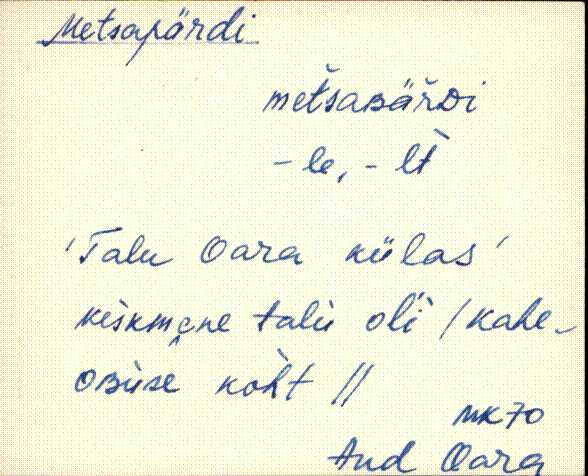 Metsapärdi
metsaBärDi
-le, -lt
'Talu Oara külas'
keskmęne talu oli / kahe-
oBüse koht //
MK 70
Aud Oara